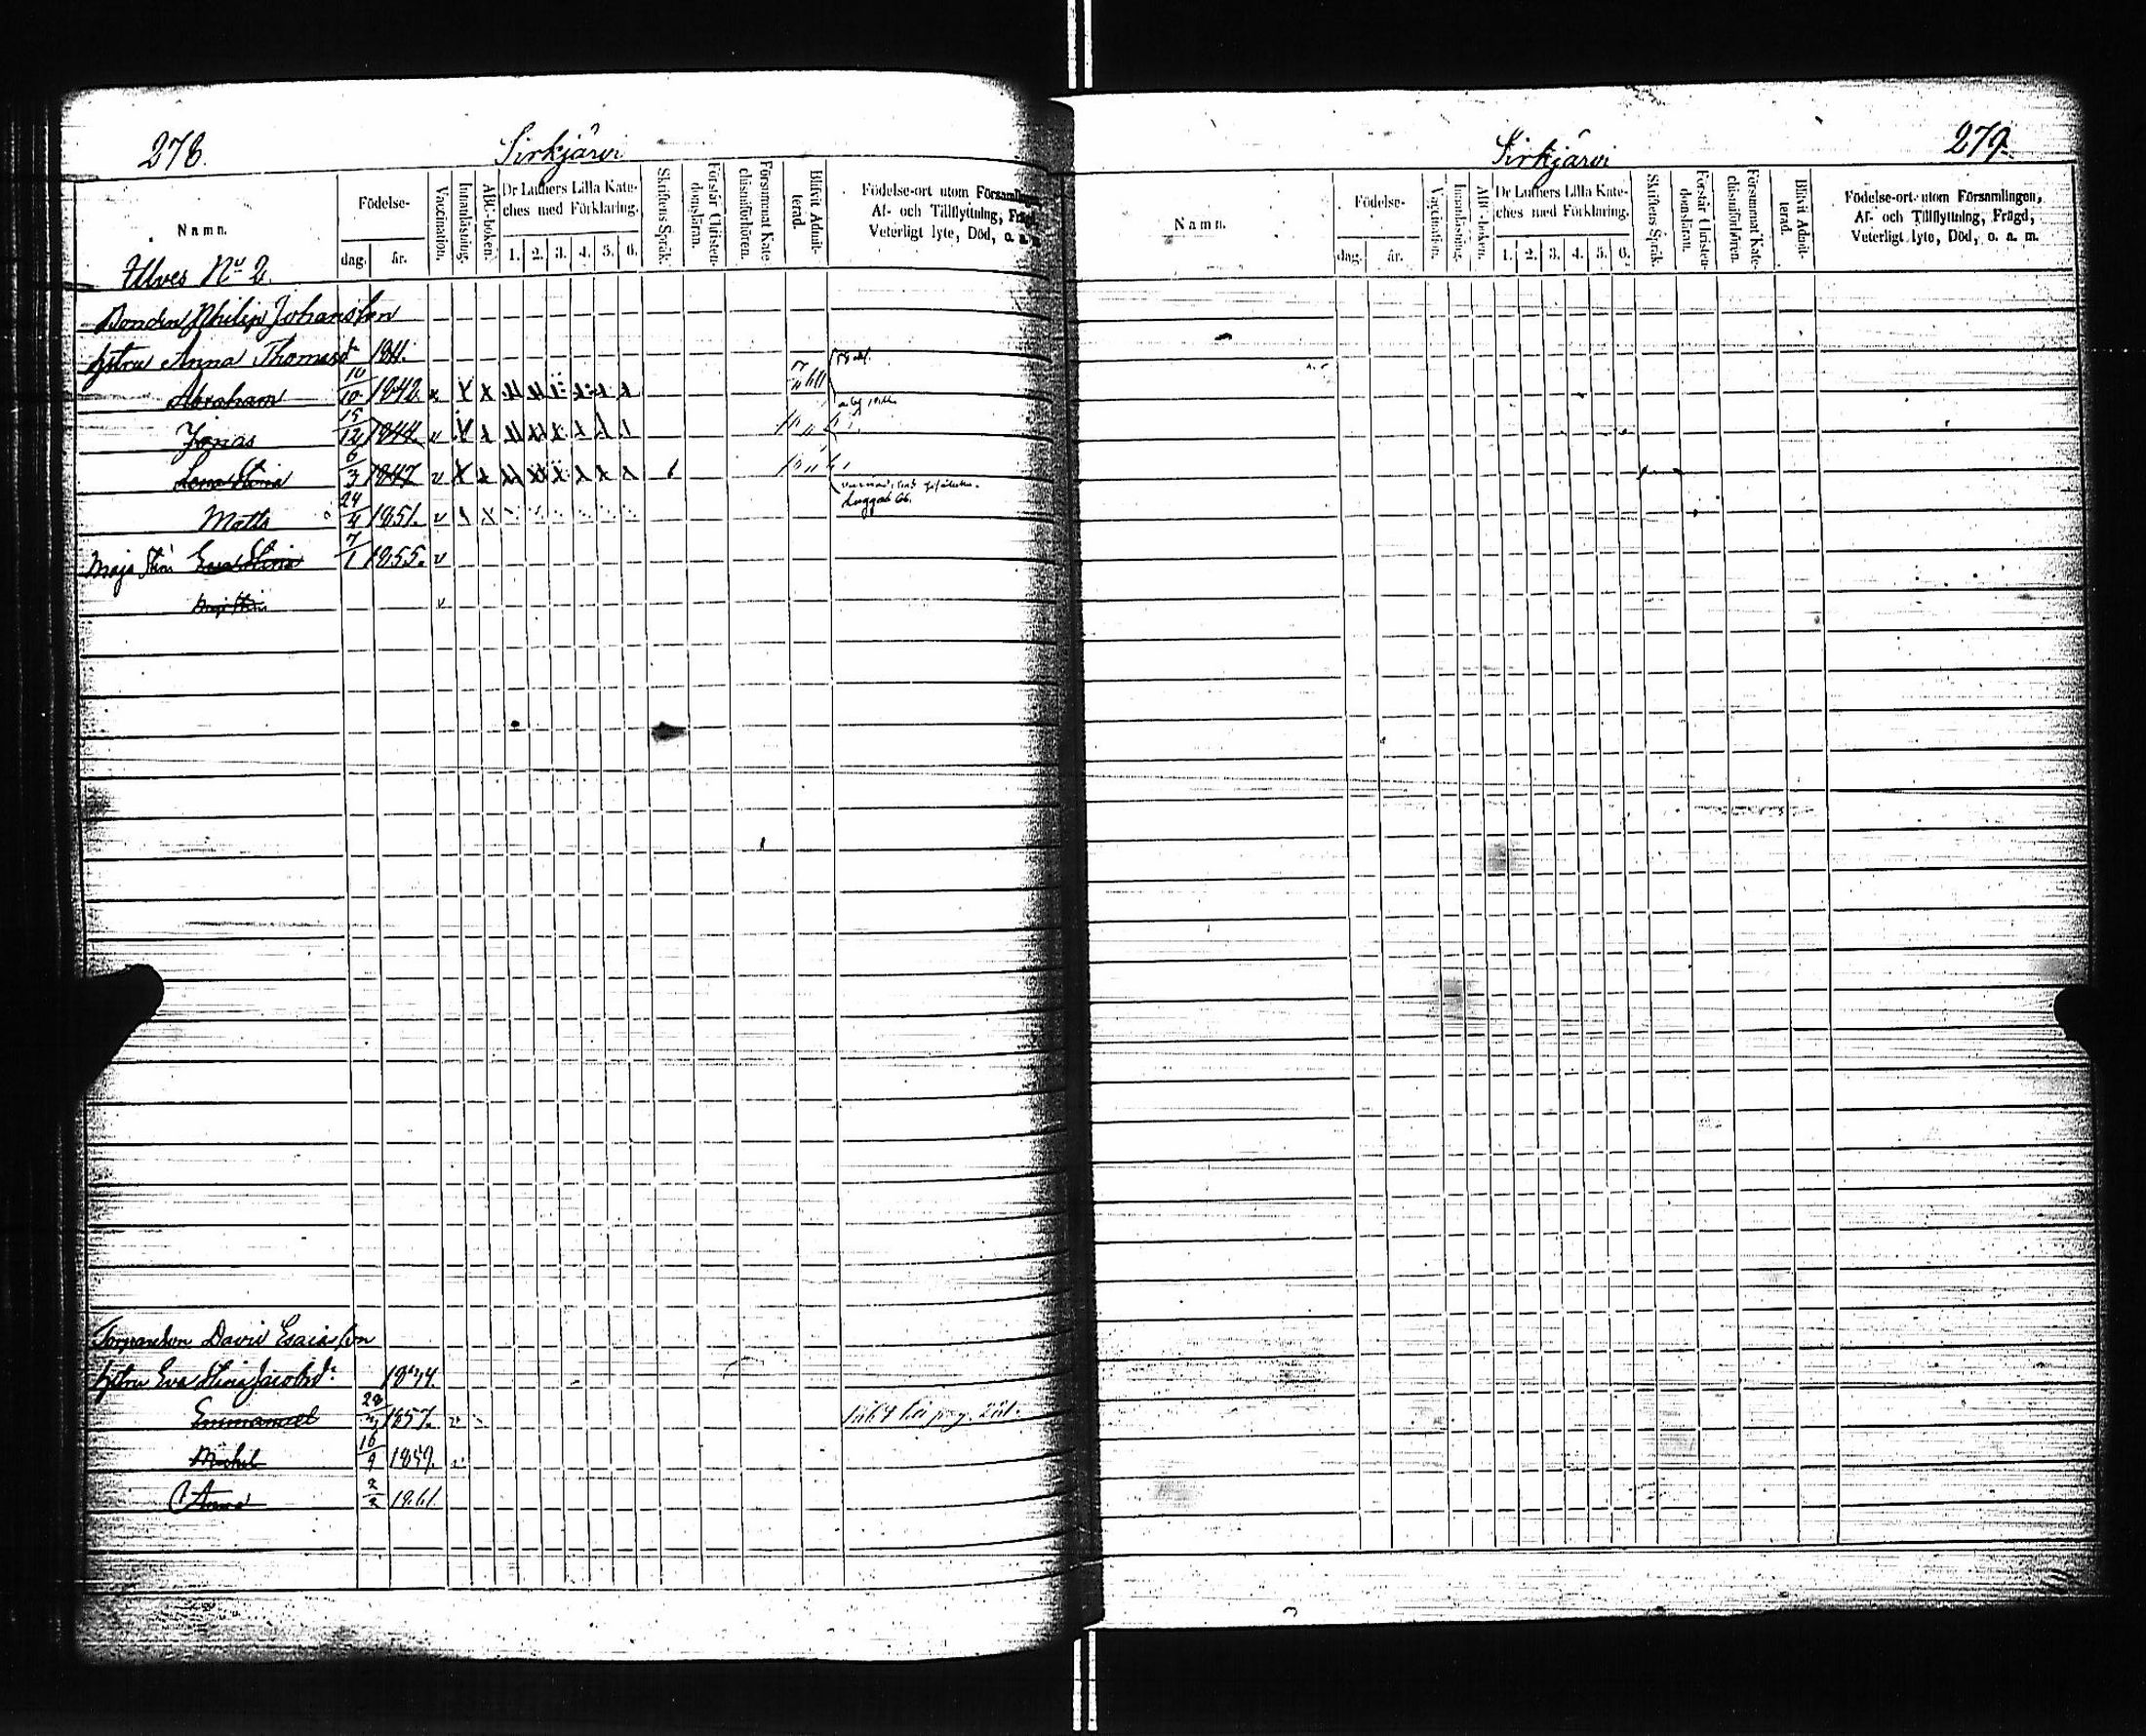 278.
Sirkjärvi
Namn.
Födelse-
dag. år.
Vaccination.
Innanläsning.
ABC-boken.
Dr Luthers Lilla Kate-
ches med Förklaring.
1. 2. 3. 4. 5. 6.
Skriftens Språk.
Förstår Christen-
domsläran.
Försummat Kate-
chismiförhören.
Blifvit Admit-
terad.
Födelse-ort utom Församlingen,
Af- och Tillflyttning, Frägd,
Veterligt lyte, Död, o. a. m.
Ulves No 2.
Bonden Philip Johansson
hstru Anna Thomasd
Abraham 10/10 1842.
Jonas 15/12 1844.
Lena Stina 6/3 1847
Matts 24/4 1851.
Maja Stin Eva Stina 7/1 1855.
Maja Stin
Torpareson David Esaiasson
hstru Eva Stina Jacobsd.
Emmanuel 1857.
Michel 16/9 1859.
Anna 2/2 1861.
279.
Sirkjärvi
Namn.
Födelse-
dag. år.
Vaccination.
Innanläsning.
ABC-boken.
Dr Luthers Lilla Kate-
ches med Förklaring.
1. 2. 3. 4. 5. 6.
Skriftens Språk.
Förstår Christen-
domsläran.
Försummat Kate-
chismiförhören.
Blifvit Admit-
terad.
Födelse-ort utom Församlingen,
Af- och Tillflyttning, Frägd,
Veterligt lyte, Död, o. a. m.